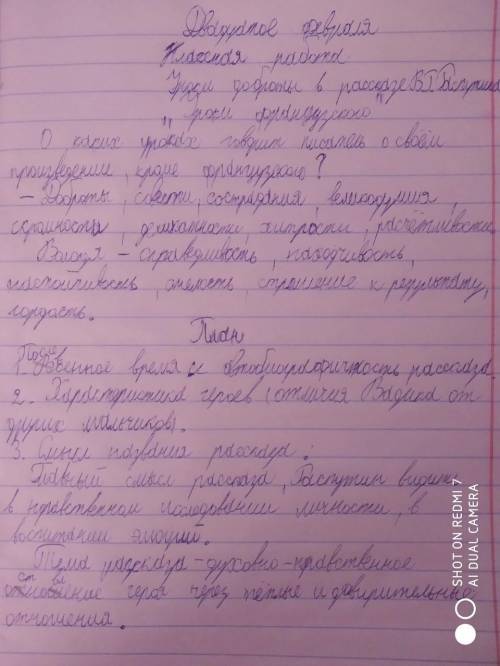 Двадцатое февраля
Классная работа
Уроки доброты в рассказе В.Г. Распутина
"Уроки французского"
О каких уроках говорит писатель о своём
произведении, кроме французского?
– Доброты, совести, сострадания, великодушия,
скромности, деликатности, хитрости, расчётливости
Володя – справедливость, находчивость,
настойчивость, смелость, стремление к результату,
гордость.
План
1. Послевоенное время и автобиографичность рассказа
2. Характеристика героев (отличия Вадика от
других мальчиков).
3. Смысл названия рассказа:
Главный смысл рассказа, Распутин видит
в нравственном исследовании личности, в
воспитании эмоций.
Тема рассказа – духовно-нравственное
становление героя через тёплые и доверительные
отношения.
SHOT ON REDMI 7
AI DUAL CAMERA